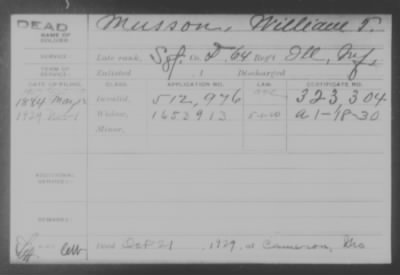 DEAD
NAME OF SOLDIER:
Musson, William T.
SERVICE:
Late rank, Sgt. Co. D, 64 Reg't Ill. Inf.
TERM OF SERVICE:
Enlisted , 1 Discharged
DATE OF FILING. CLASS. APPLICATION NO. LAW. CERTIFICATE NO.
1884 May Invalid, 512,976 323,304
1929 Nov Widow, 1653913 5-1-20 A-1-98-30
Minor,
ADDITIONAL SERVICES:
REMARKS:
Died Oct 21, 1929, at Cameron, Mo